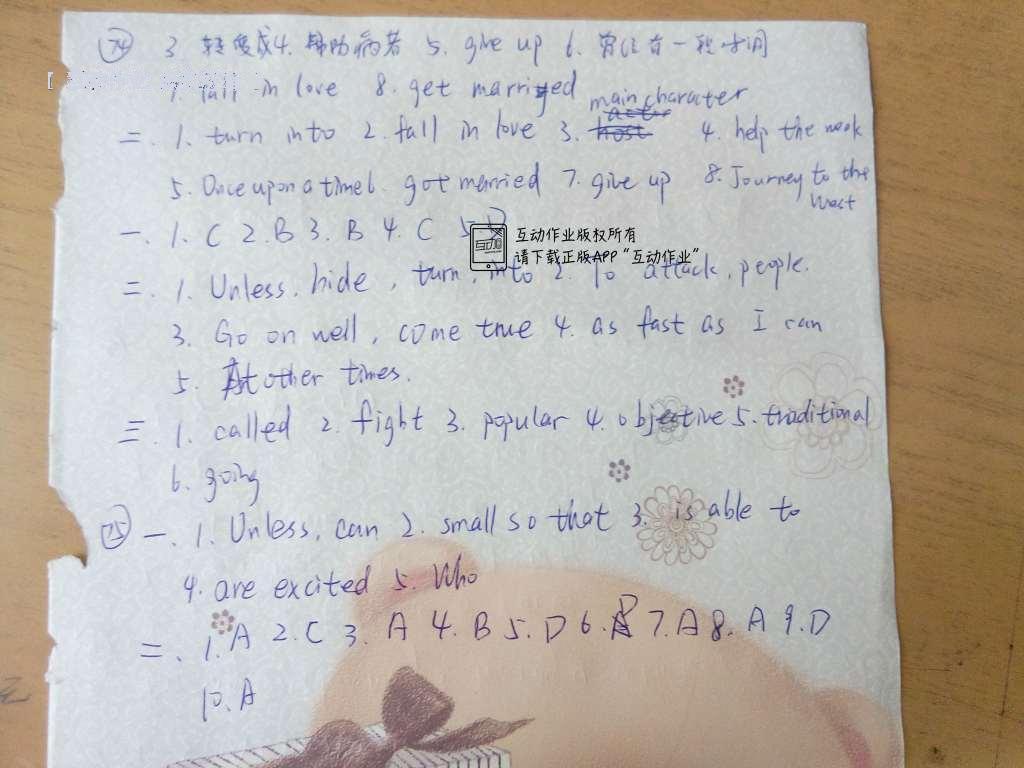 74 3. 转变成 4. 帮助病者 5. give up 6. 曾经有一段时间
7. fall in love 8. get married
二. 1. turn into 2. fall in love 3. main character 4. help the weak
5. Once upon a time 6. got married 7. give up 8. Journey to the West
一. 1. C 2. B 3. B 4. C 5.
互动作业版权所有
请下载正版APP“互动作业”
二. 1. Unless, hide, turn, into 2. To attack, people.
3. Go on well, come true 4. as fast as I can
5. At other times.
三. 1. called 2. fight 3. popular 4. objective 5. traditional
6. going
75 一. 1. Unless, can 2. small so that 3. is able to
4. are excited 5. Who
二. 1. A 2. C 3. A 4. B 5. D 6. B 7. A 8. A 9. D
10. A